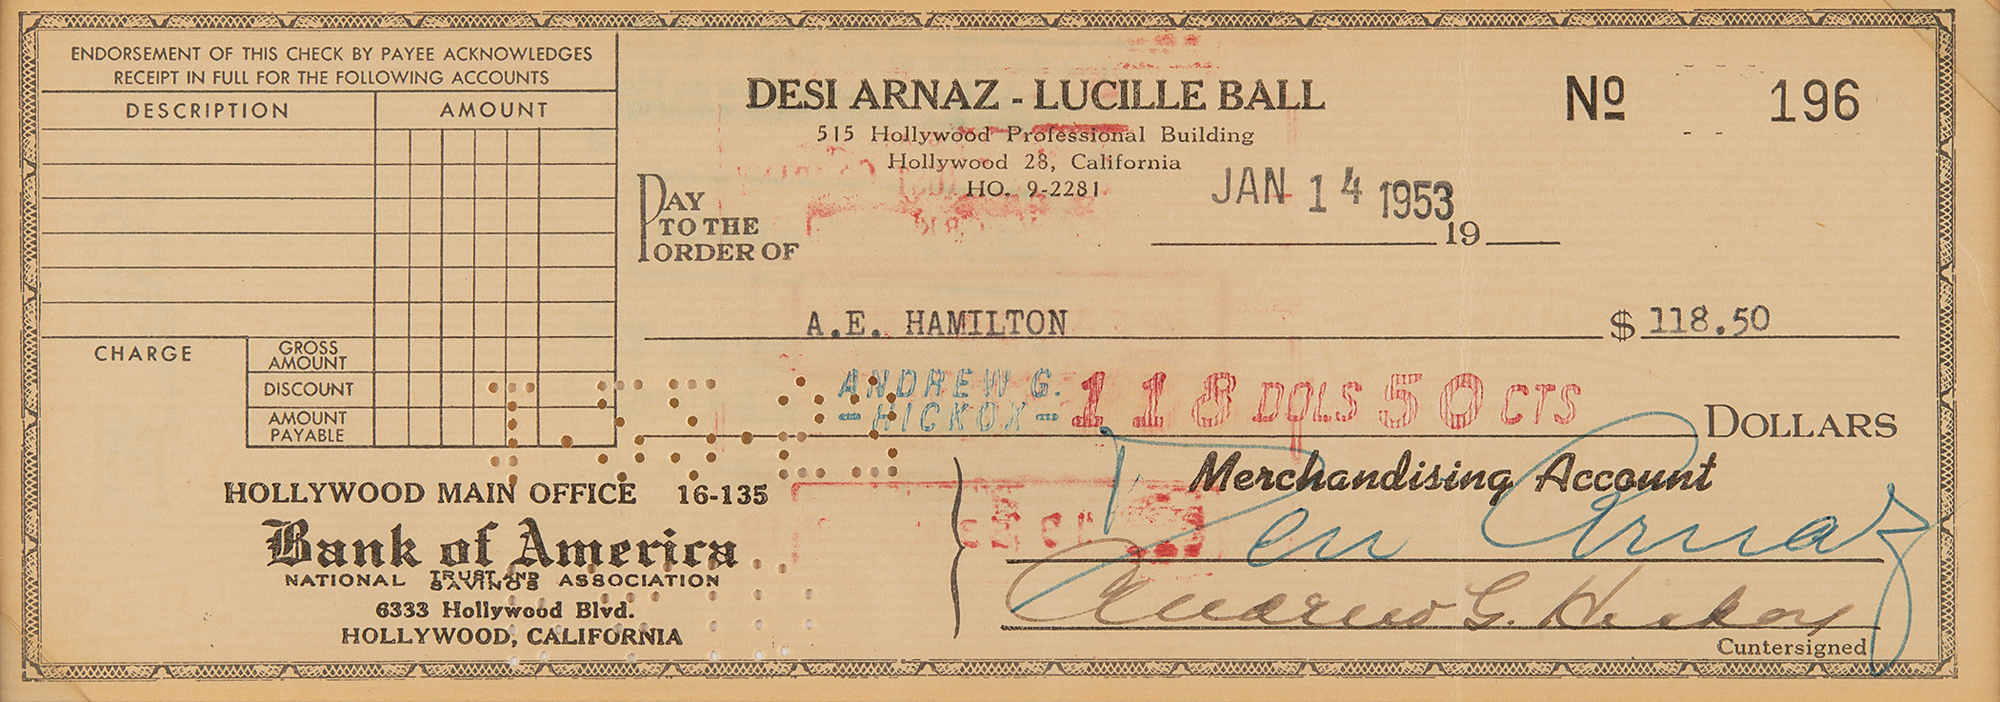 ENDORSEMENT OF THIS CHECK BY PAYEE ACKNOWLEDGES
RECEIPT IN FULL FOR THE FOLLOWING ACCOUNTS
DESCRIPTION AMOUNT
CHARGE
GROSS AMOUNT
DISCOUNT
AMOUNT PAYABLE
DESI ARNAZ - LUCILLE BALL
515 Hollywood Professional Building
Hollywood 28, California
HO. 9-2281
No 196
JAN 14 1953
19
PAY
TO THE
ORDER OF
A.E. HAMILTON $ 118.50
ANDREW G.
-HICKOX-
118 DOLS 50 CTS
DOLLARS
HOLLYWOOD MAIN OFFICE 16-135
Bank of America
NATIONAL TRUST AND SAVINGS ASSOCIATION
6333 Hollywood Blvd.
HOLLYWOOD, CALIFORNIA
Merchandising Account
Desi Arnaz
Andrew G. Hickox
Cuntersigned